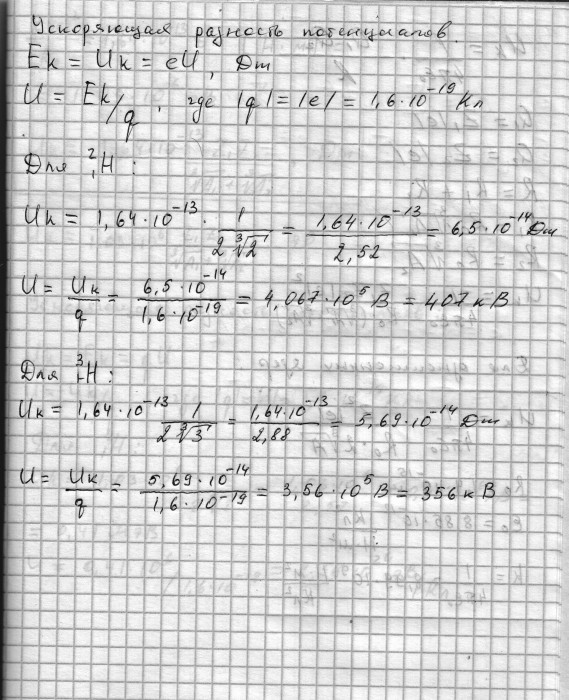 Ускоряющая разность потенциалов.
Eк = Uк = eU, Дж
U = Eк/q, где |q| = |e| = 1,6·10⁻¹⁹ Кл
Для ²₁H:
Uк = 1,64·10⁻¹³ · 1/(2∛2) = 1,64·10⁻¹³/2,52 = 6,5·10⁻¹⁴ Дж
U = Uк/q = 6,5·10⁻¹⁴/1,6·10⁻¹⁹ = 4,067·10⁵ В = 407 кВ
Для ³₁H:
Uк = 1,64·10⁻¹³ 1/(2∛3) = 1,64·10⁻¹³/2,88 = 5,69·10⁻¹⁴ Дж
U = Uк/q = 5,69·10⁻¹⁴/1,6·10⁻¹⁹ = 3,56·10⁵ В = 356 кВ